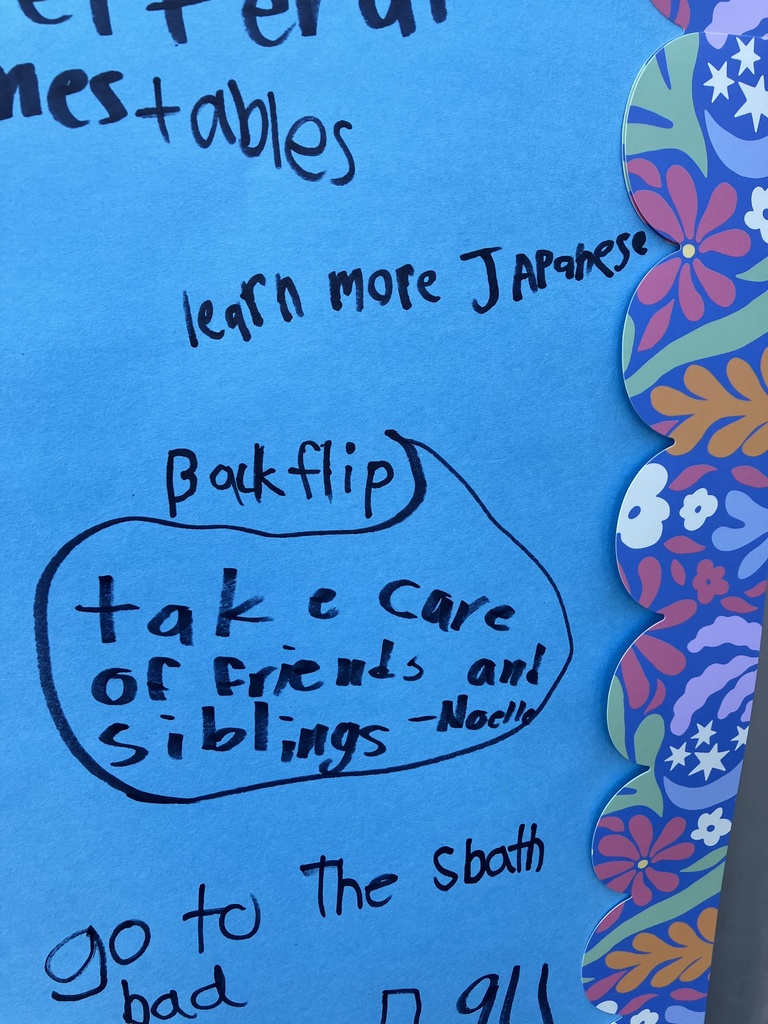 tables
learn more Japanese
Backflip
take care
of friends and
siblings -Noelle
go to The sbath
bad